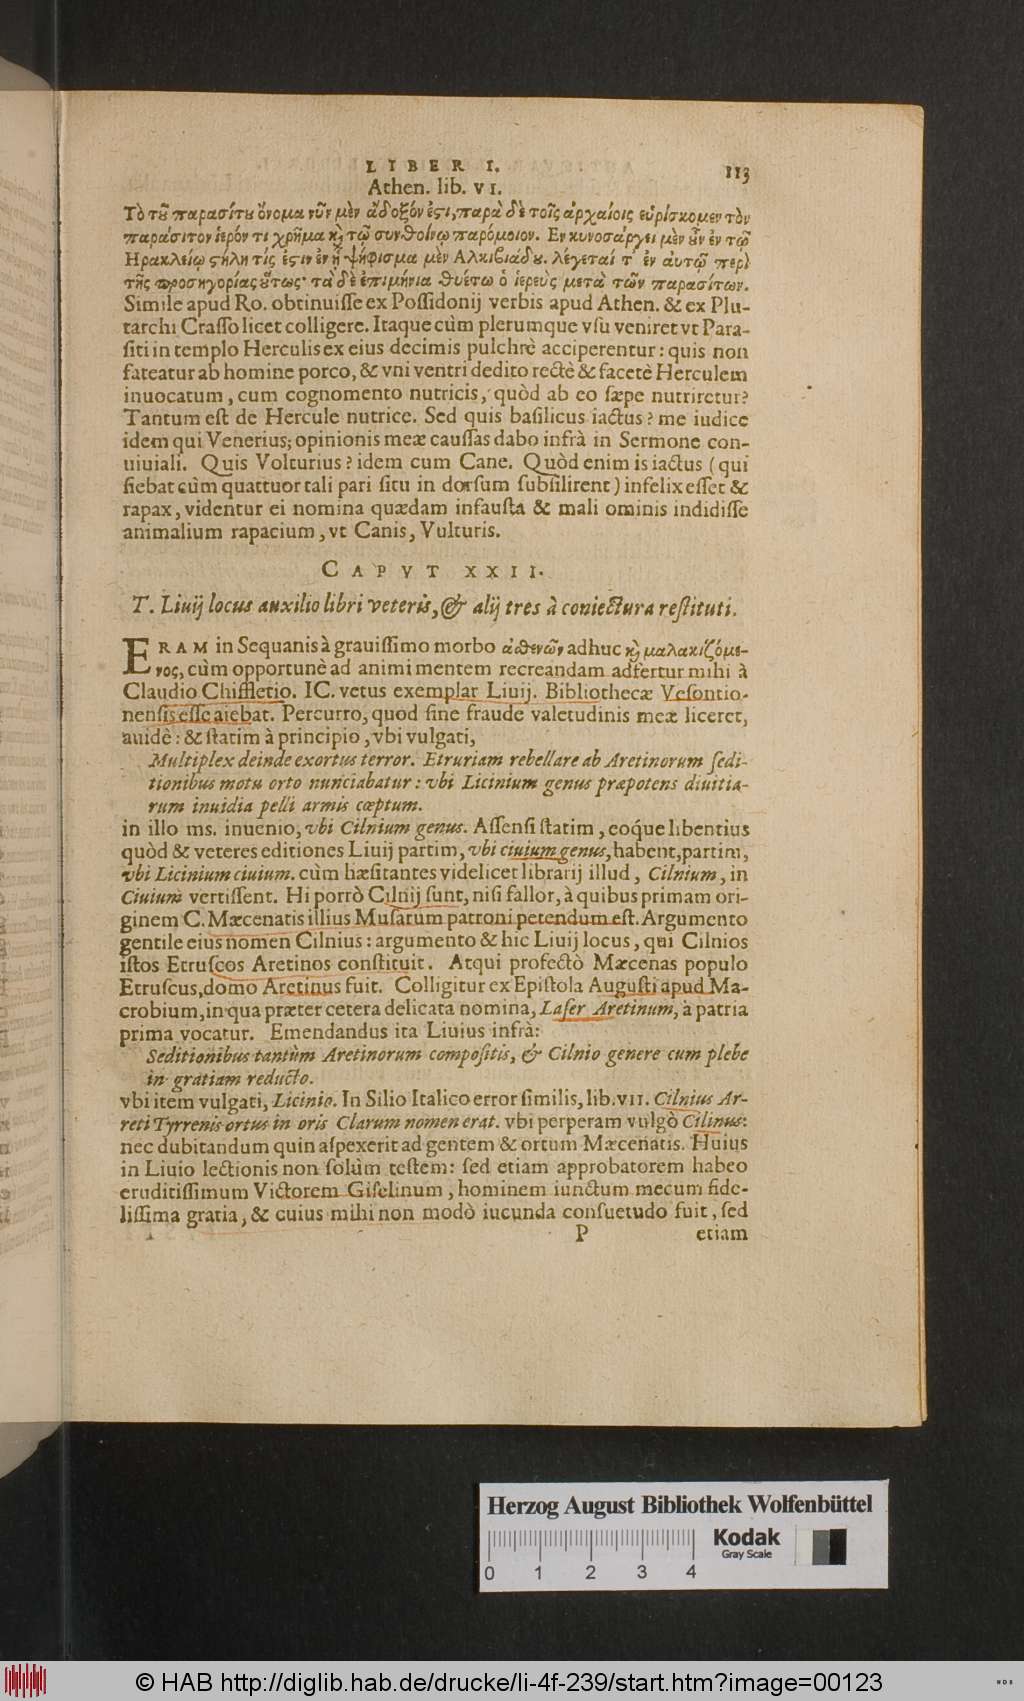 LIBER I. 113
Athen. lib. VI.
Τὸ τȣ͂ παρασίτȣ ὄνομα νῦν μὲν ἄδοξόν ἐϛι, παρὰ δὲ τοῖς ἀρχαίοις εὑρίσκομεν τὸν
παράσιτον ἱερόν τι χρῆμα κ̀ τῷ συνθοίνῳ παρόμοιον. Εν κυνοσάργει μὲν ȣ͂ν ἐν τῷ
Ηρακλείῳ ϛήλη τίς ἐϛιν ἐν ᾗ ψήφισμα μὲν Αλκιβιάδȣ. λέγεταί τ' ἐν αυτῷ περὶ
τῆς προσηγορίας ȣ῞τως· τὰ δὲ ἐπιμήνια θυέτω ὁ ἱερεὺς μετὰ τῶν παρασίτων.
Simile apud Ro. obtinuiſſe ex Poſſidonij verbis apud Athen. & ex Plu-
tarchi Craſſo licet colligere. Itaque cùm plerumque vſu veniret vt Para-
ſiti in templo Herculis ex eius decimis pulchrè acciperentur: quis non
fateatur ab homine porco, & vni ventri dedito rectè & facetè Herculem
inuocatum, cum cognomento nutricis, quòd ab eo ſæpe nutriretur?
Tantum eſt de Hercule nutrice. Sed quis baſilicus iactus? me iudice
idem qui Venerius; opinionis meæ cauſſas dabo infrà in Sermone con-
uiuiali. Quis Volturius? idem cum Cane. Quòd enim is iactus (qui
fiebat cùm quattuor tali pari ſitu in dorſum ſubſilirent) infelix eſſet &
rapax, videntur ei nomina quædam infauſta & mali ominis indidiſſe
animalium rapacium, vt Canis, Vulturis.
CAPVT XXII.
T. Liuij locus auxilio libri veteris, & alij tres à coniectura reſtituti.
ERAM in Sequanis à grauiſſimo morbo ἀσθενῶν adhuc κ̀ μαλακιζόμε-
νος, cùm opportunè ad animi mentem recreandam adfertur mihi à
Claudio Chiffletio. IC. vetus exemplar Liuij. Bibliothecæ Veſontio-
nenſis eſſe aiebat. Percurro, quod ſine fraude valetudinis meæ liceret,
auidè: & ſtatim à principio, vbi vulgati,
Multiplex deinde exortus terror. Etruriam rebellare ab Aretinorum ſedi-
tionibus motu orto nunciabatur: vbi Licinium genus præpotens diuitia-
rum inuidia pelli armis cœptum.
in illo ms. inuenio, vbi Cilnium genus. Aſſenſi ſtatim, eóque libentius
quòd & veteres editiones Liuij partim, vbi ciuium genus, habent, partim,
vbi Licinium ciuium. cùm hæſitantes videlicet librarij illud, Cilnium, in
Ciuium vertiſſent. Hi porrò Cilnij ſunt, niſi fallor, à quibus primam ori-
ginem C. Mæcenatis illius Muſarum patroni petendum eſt. Argumento
gentile eius nomen Cilnius: argumento & hic Liuij locus, qui Cilnios
iſtos Etruſcos Aretinos conſtituit. Atqui profectò Mæcenas populo
Etruſcus, domo Aretinus fuit. Colligitur ex Epiſtola Auguſti apud Ma-
crobium, in qua præter cetera delicata nomina, Laſer Aretinum, à patria
prima vocatur. Emendandus ita Liuius infrà:
Seditionibus tantùm Aretinorum compoſitis, & Cilnio genere cum plebe
in gratiam reducto.
vbi item vulgati, Licinio. In Silio Italico error ſimilis, lib. VII. Cilnius Ar-
reti Tyrrenis ortus in oris Clarum nomen erat. vbi perperam vulgò Cilinus:
nec dubitandum quin aſpexerit ad gentem & ortum Mæcenatis. Huius
in Liuio lectionis non ſolùm teſtem: ſed etiam approbatorem habeo
eruditiſſimum Victorem Giſelinum, hominem iunctum mecum fide-
liſſima gratia, & cuius mihi non modò iucunda conſuetudo fuit, ſed
P etiam
Herzog August Bibliothek Wolfenbüttel
Kodak
Gray Scale
0 1 2 3 4
© HAB http://diglib.hab.de/drucke/li-4f-239/start.htm?image=00123